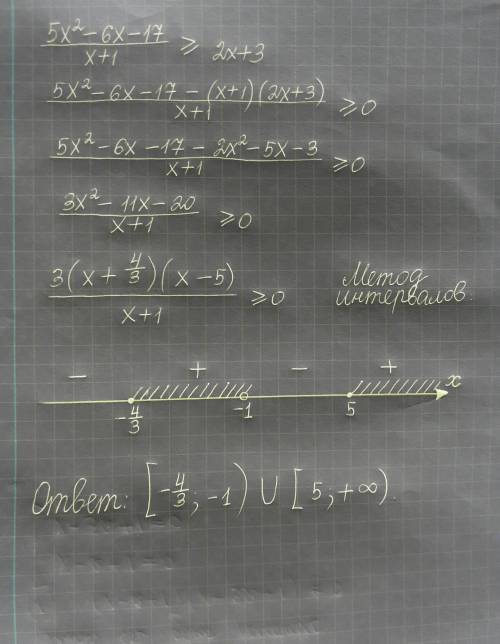 (5x² − 6x − 17)/(x+1) ≥ 2x+3
(5x² − 6x − 17 − (x+1)(2x+3))/(x+1) ≥ 0
(5x² − 6x − 17 − 2x² − 5x − 3)/(x+1) ≥ 0
(3x² − 11x − 20)/(x+1) ≥ 0
3(x + 4/3)(x − 5)/(x+1) ≥ 0
Метод
интервалов.
− + − +
x
−4/3 −1 5
Ответ: [−4/3; −1) ∪ [5; +∞).